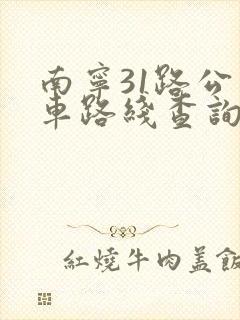 南寧31路公
車路綫查詢
紅燒牛肉盖飯